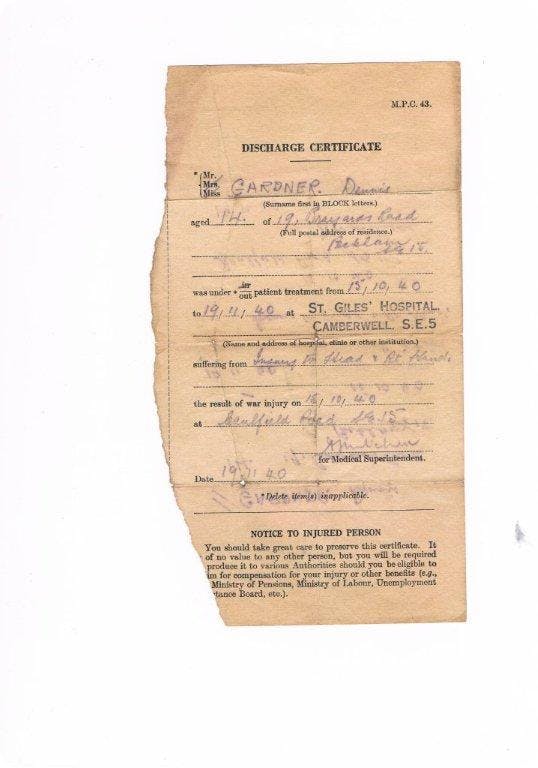 M.P.C. 43.
DISCHARGE CERTIFICATE
* Mr.
Mrs.
Miss
GARDNER. Dennis
(Surname first in BLOCK letters.)
aged 14. of 19, Brayards Road
(Full postal address of residence.)
Peckham SE 15.
was under * in out patient treatment from 15, 10, 40
to 19, 11, 40 at ST. GILES' HOSPITAL,
CAMBERWELL, S.E.5
(Name and address of hospital, clinic or other institution.)
suffering from Injury to Head & Rt Hand.
the result of war injury on 10, 40
at Road SE 15
for Medical Superintendent.
Date 19 11 40
* Delete item(s) inapplicable.
NOTICE TO INJURED PERSON
You should take great care to preserve this certificate. It
of no value to any other person, but you will be required
produce it to various Authorities should you be eligible to
im for compensation for your injury or other benefits (e.g.,
Ministry of Pensions, Ministry of Labour, Unemployment
tance Board, etc.).